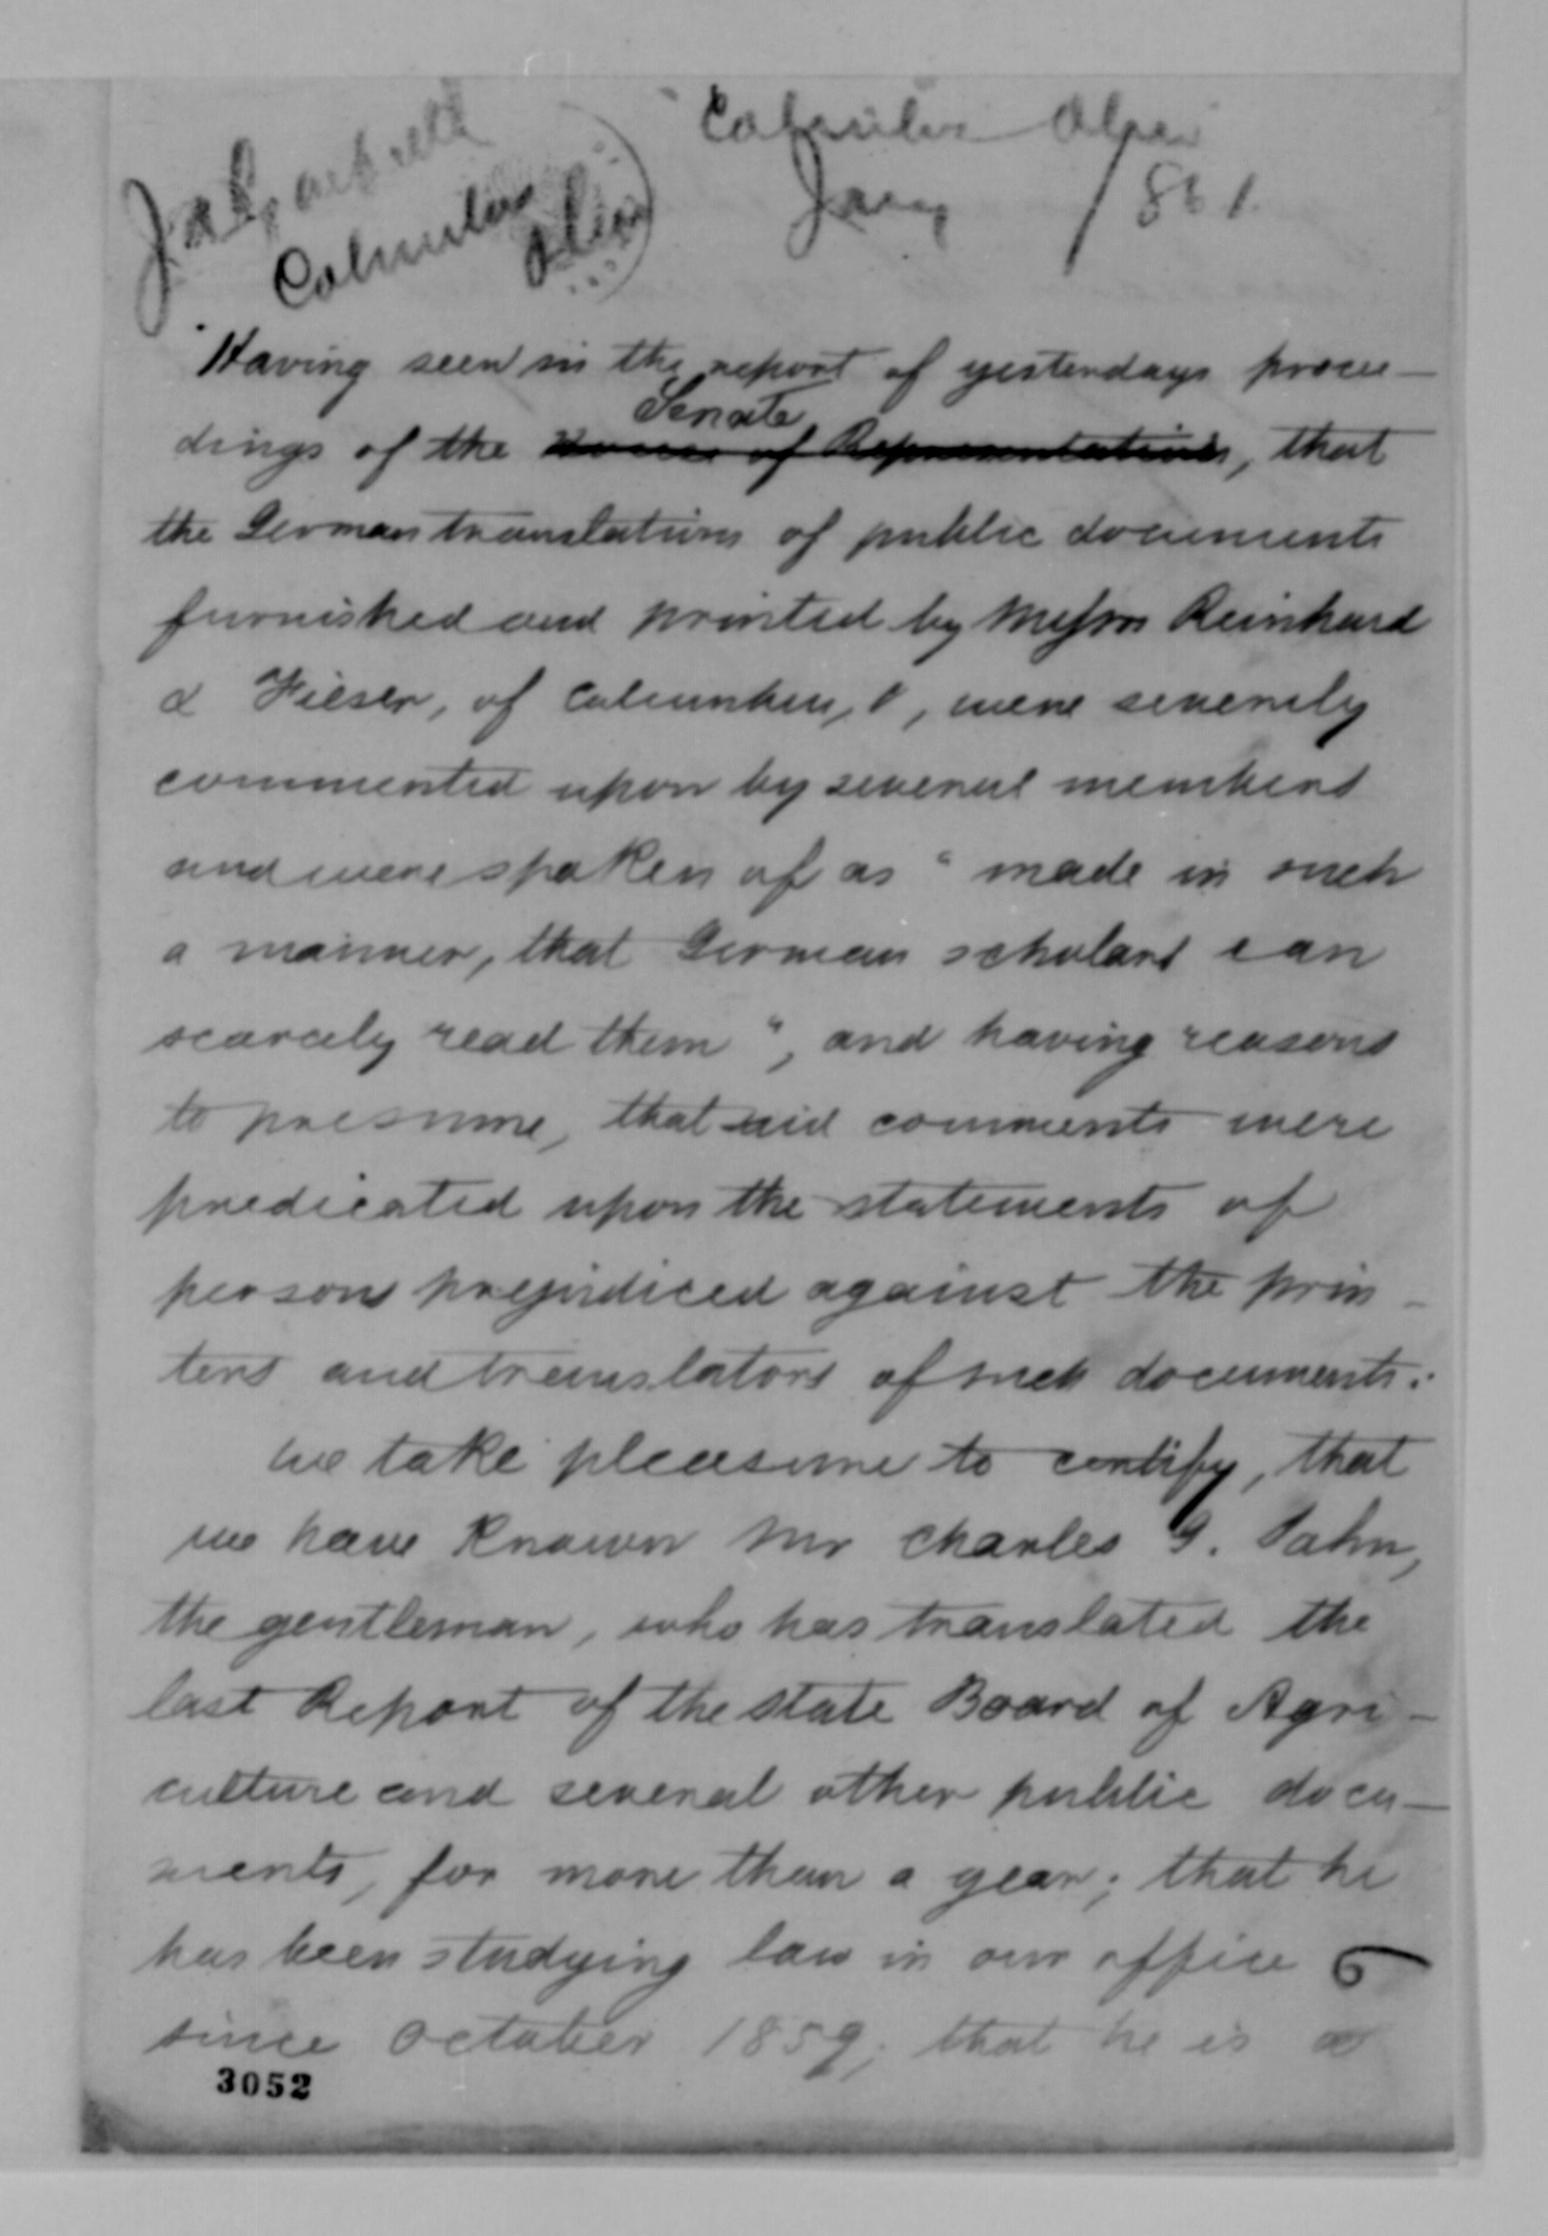 Columbus Ohio
Jany / 861.
Columbus
Ohio
Having seen in the report of yesterdays procee-
Senate
dings of the House of Representatives, that
the German translations of public documents
furnished and printed by Messrs Reinhard
& Fieser, of Columbus, O, were severely
commented upon by several members
and were spoken of as "made in such
a manner, that German scholars can
scarcely read them", and having reasons
to presume, that said comments were
predicated upon the statements of
persons prejudiced against the prin-
ters and translators of such documents:
We take pleasure to certify, that
we have known Mr Charles G. Jahn,
the gentleman, who has translated the
last Report of the State Board of Agri-
culture and several other public docu-
ments, for more than a year; that he
has been studying law in our office
since October 1859; that he is a
3052